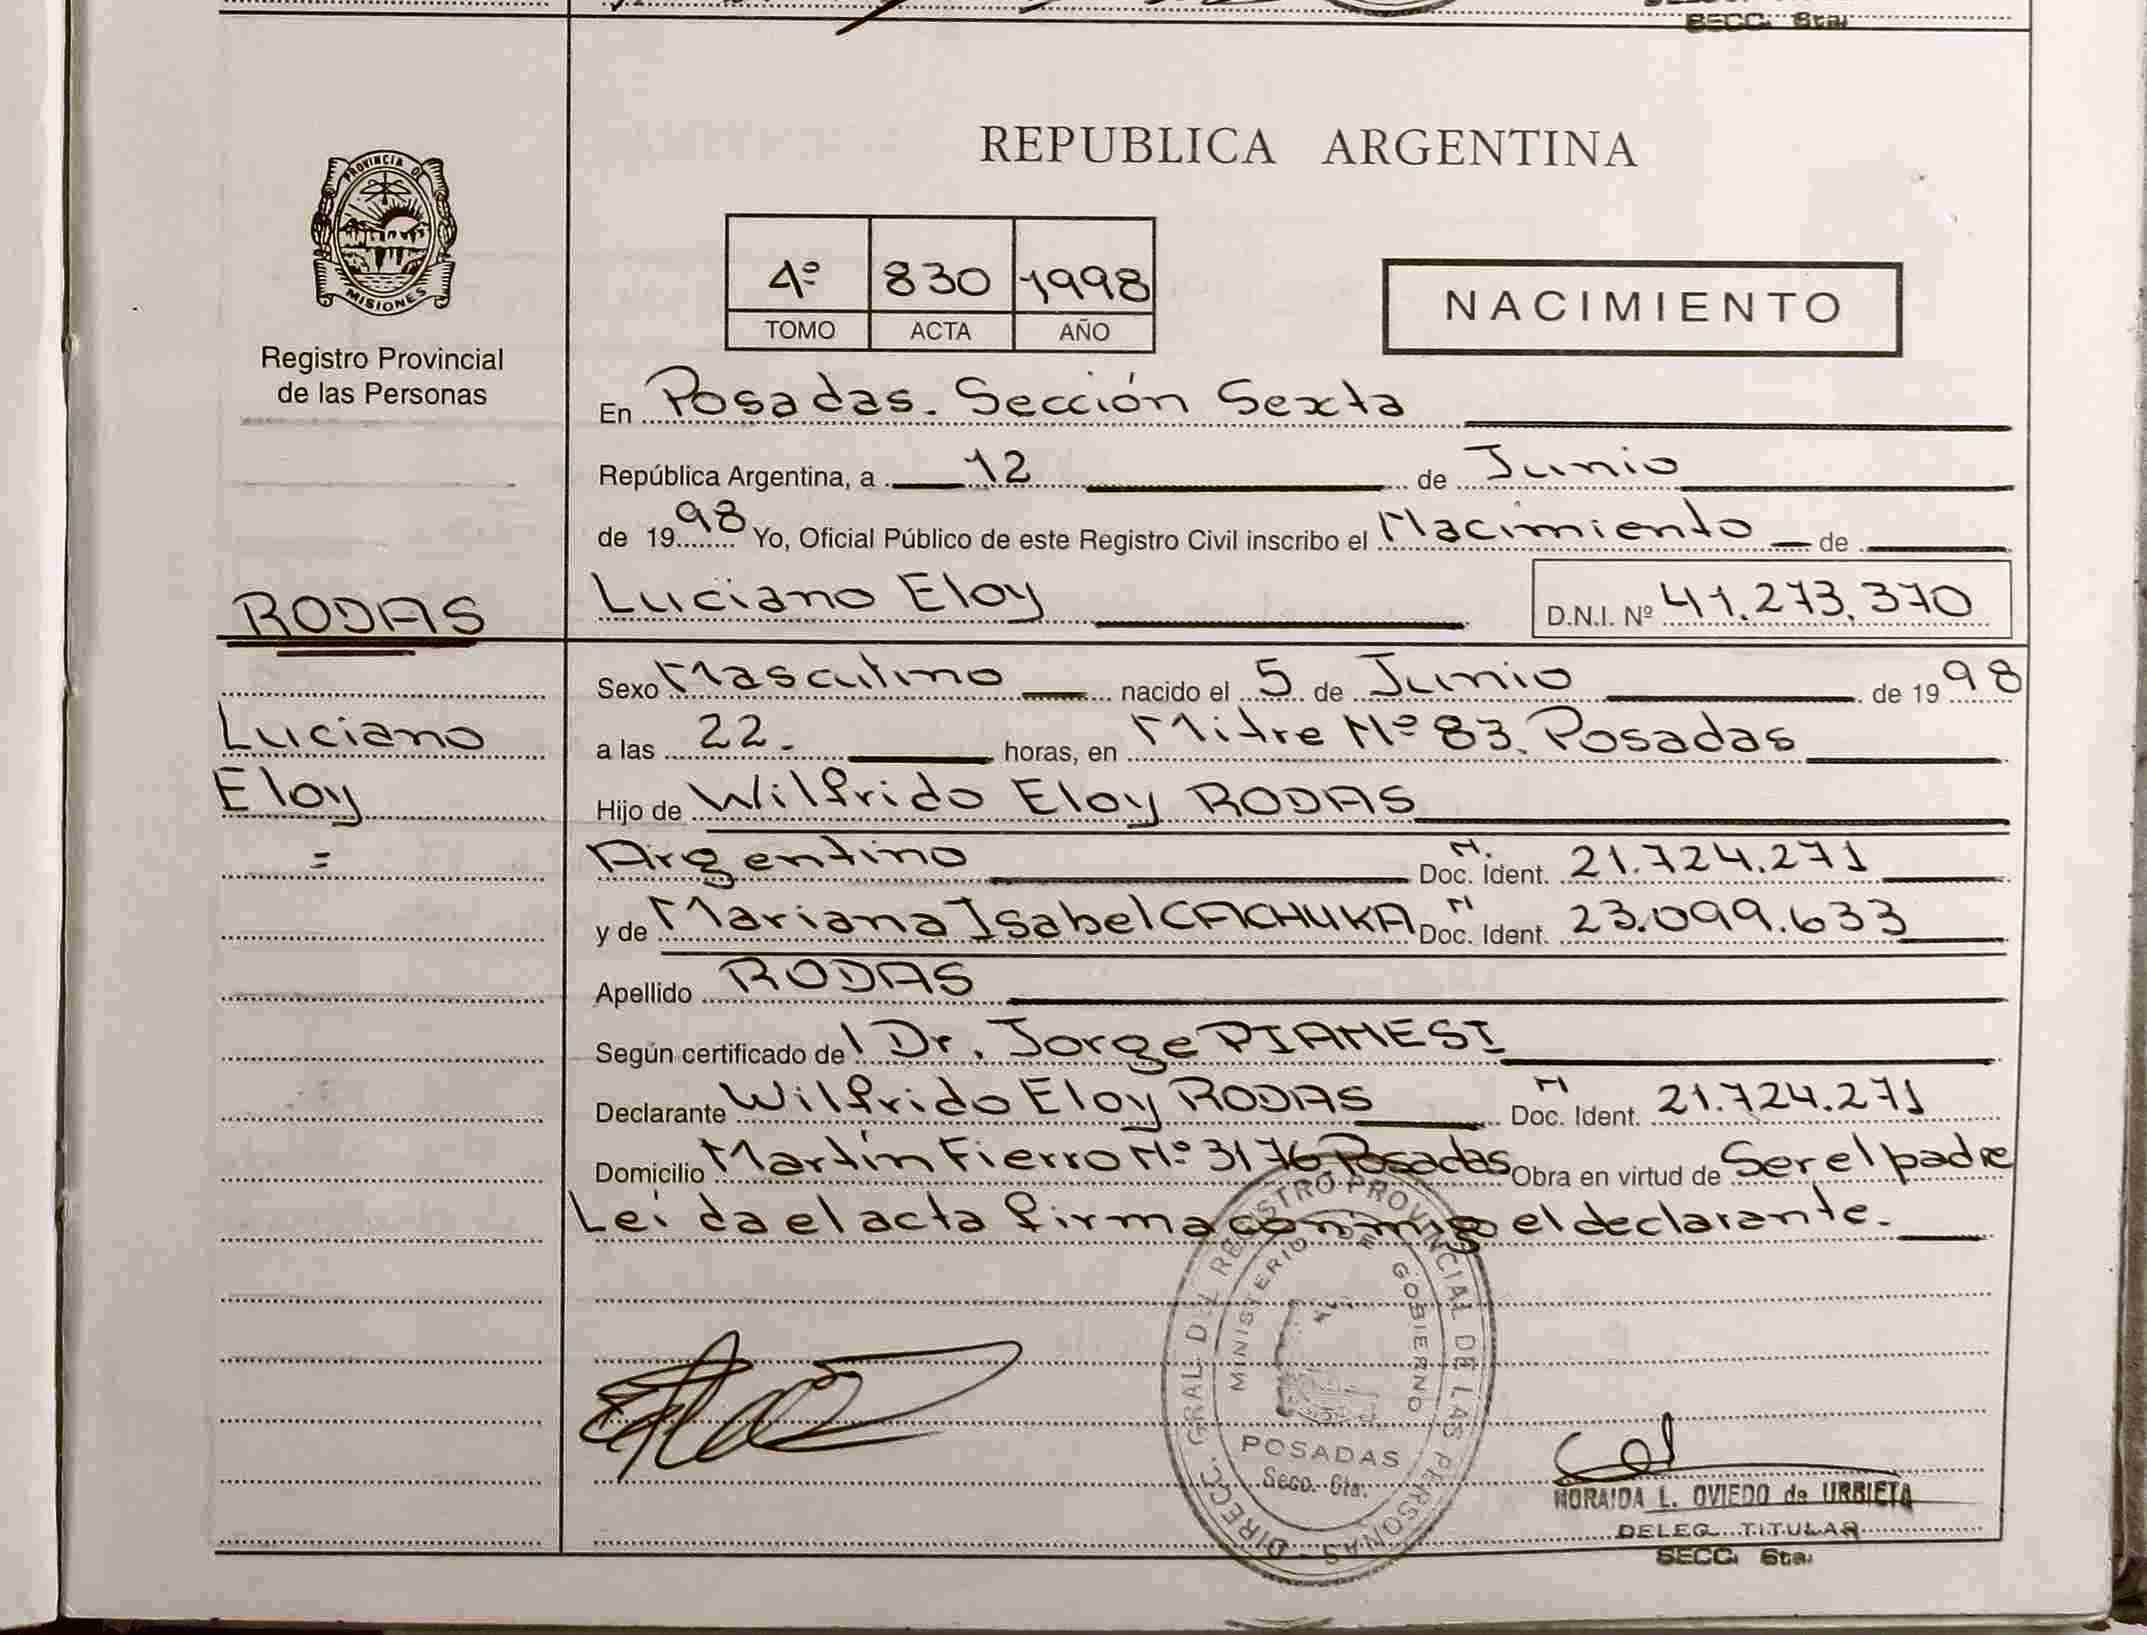 SECC. 6ta.
REPUBLICA ARGENTINA
PROVINCIA DE
MISIONES
Registro Provincial
de las Personas
4º 830 1998
TOMO ACTA AÑO
NACIMIENTO
En Posadas. Sección Sexta
República Argentina, a 12 de Junio
de 1998 Yo, Oficial Público de este Registro Civil inscribo el Nacimiento de
RODAS
Luciano Eloy D.N.I. Nº 41.273.370
Sexo Masculino nacido el 5 de Junio de 1998
Luciano
a las 22. horas, en Mitre Nº 83. Posadas
Eloy
Hijo de Wilfrido Eloy RODAS
=
Argentino Doc. Ident. N. 21.724.271
y de Mariana Isabel CACHUKA Doc. Ident. N 23.099.633
Apellido RODAS
Según certificado del Dr. Jorge PIANESI
Declarante Wilfrido Eloy RODAS Doc. Ident. N 21.724.271
Domicilio Martín Fierro Nº 3176 Posadas Obra en virtud de Ser el padre
Leída el acta firma conmigo el declarante.
DIRECC. GRAL DEL REGISTRO PROVINCIAL DE LAS PERSONAS
MINISTERIO DE GOBIERNO
POSADAS
Secc. 6ta.
NORAIDA L. OVIEDO de URBIETA
DELEG. TITULAR
SECC. 6ta.